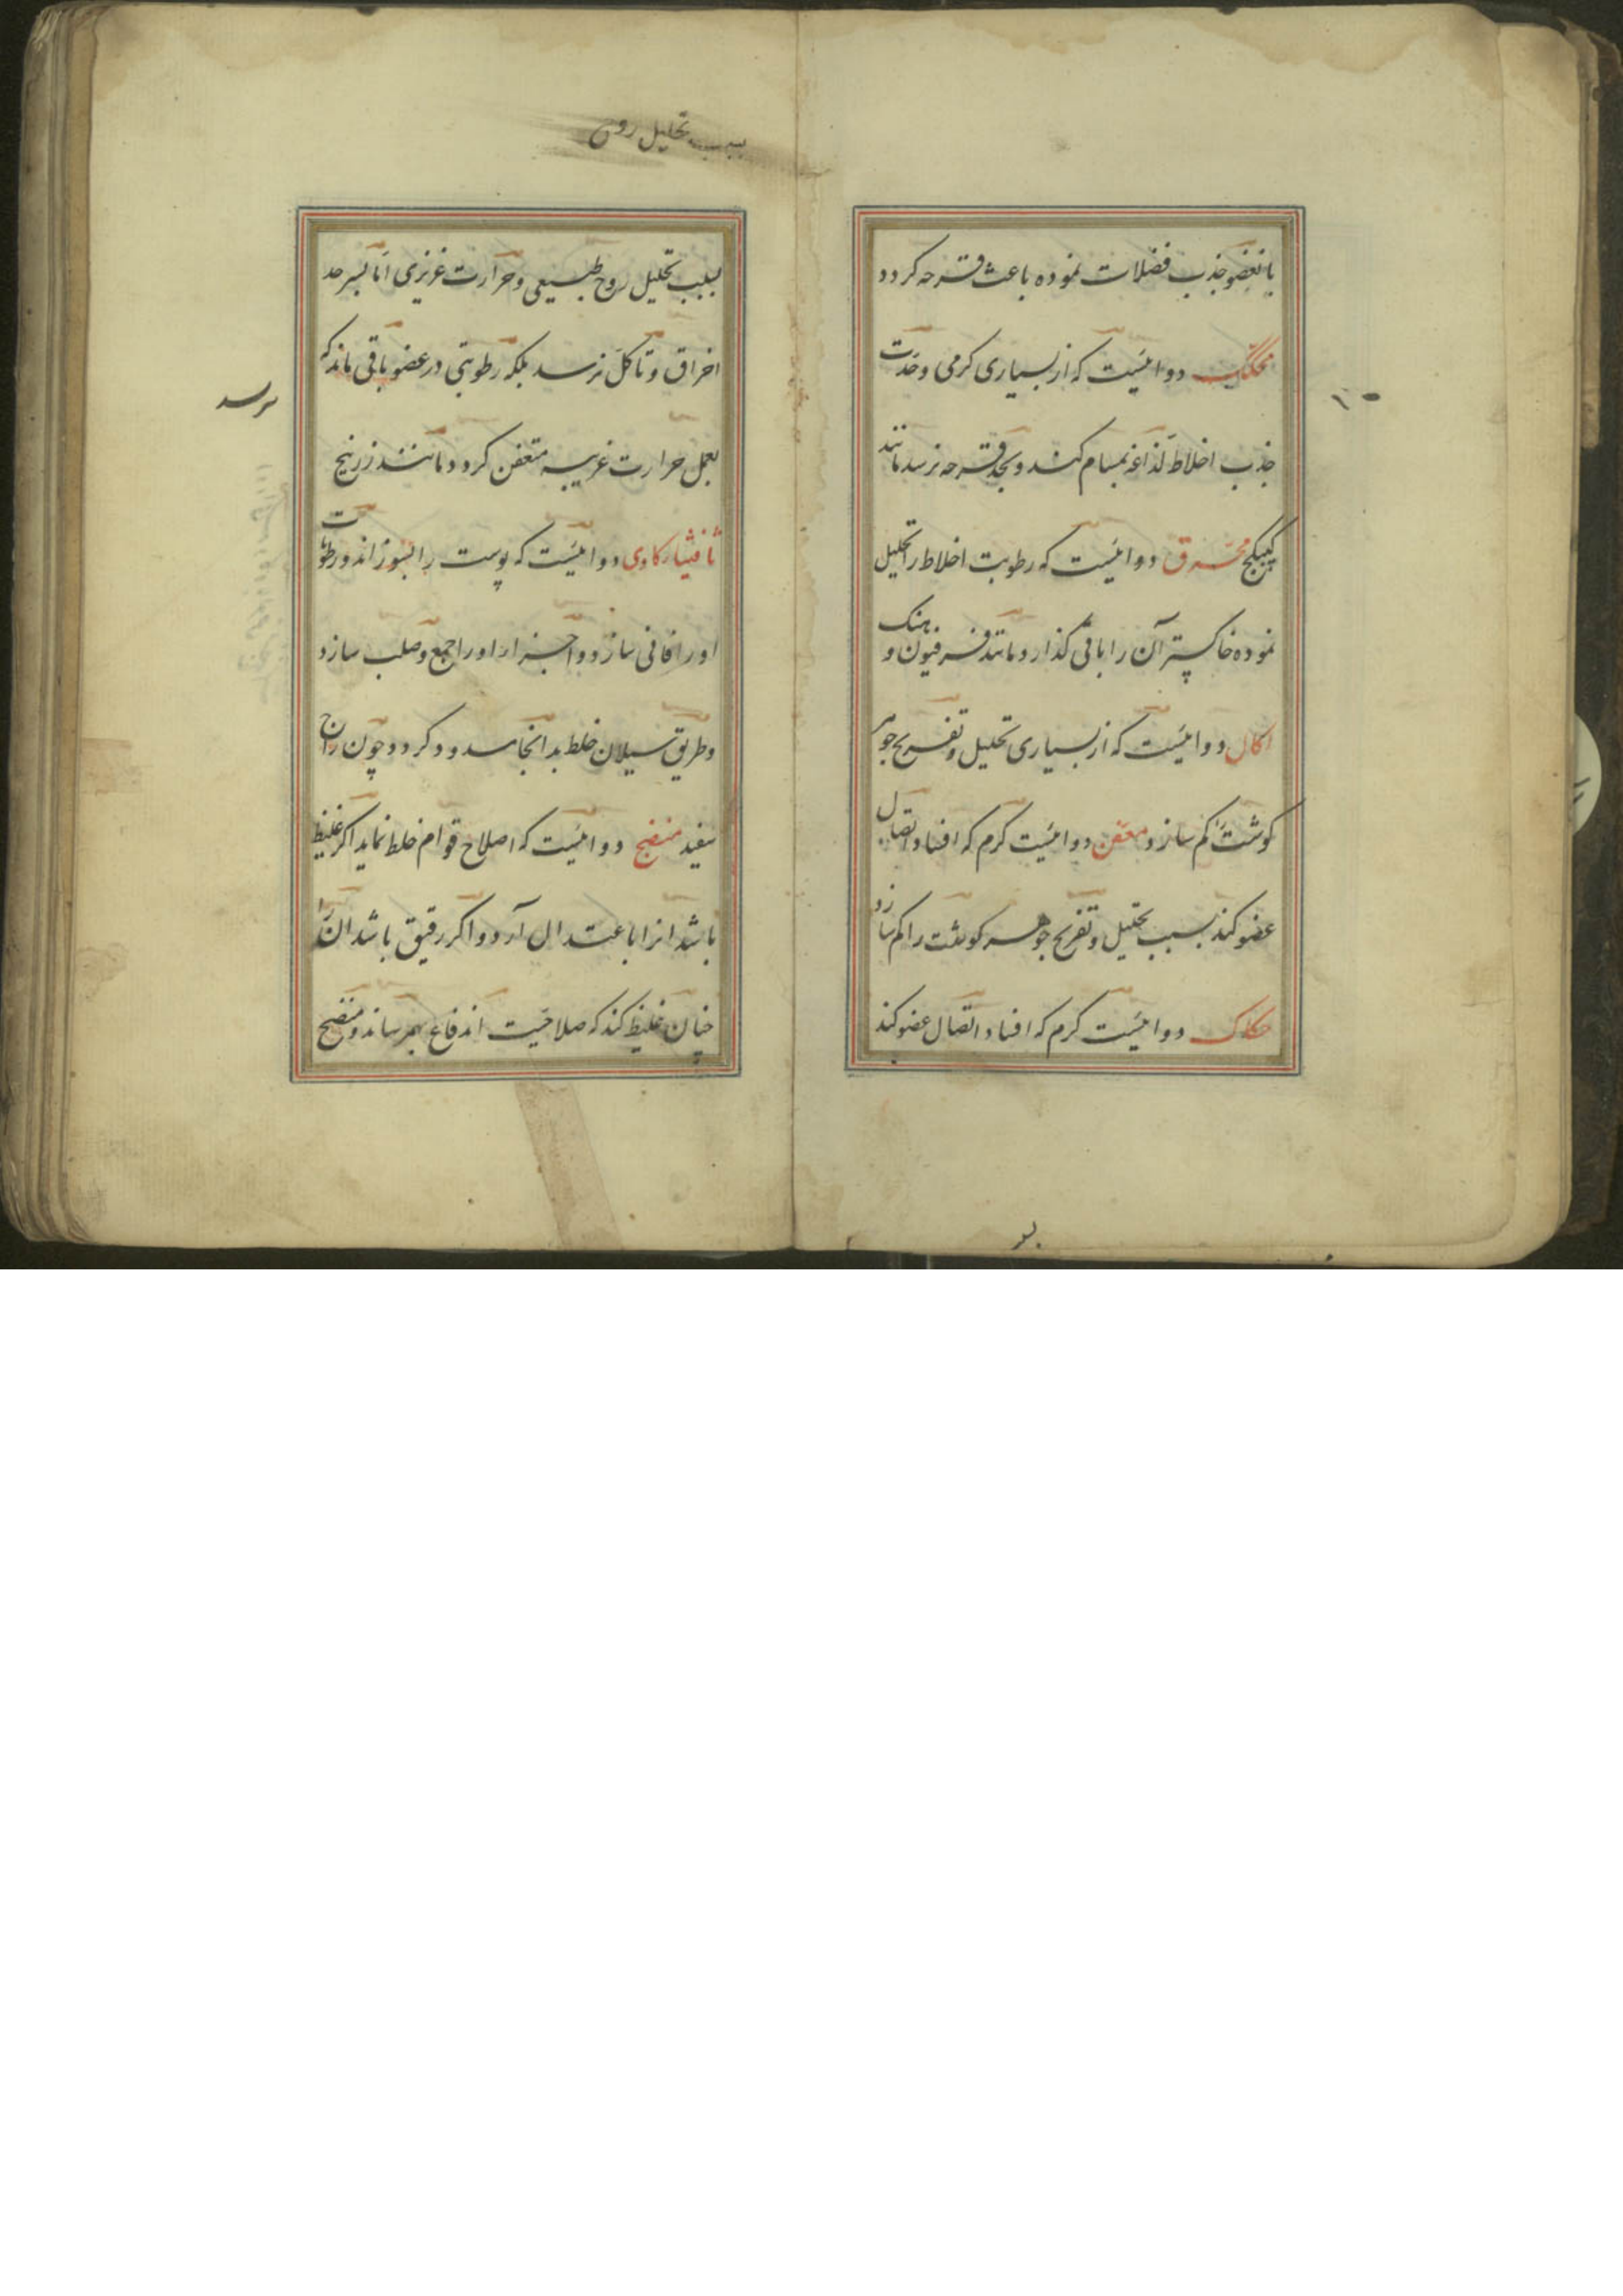 بانعضو جذب فضلات نموده باعث قرحه کردد
محکک دوائیست که از بسیاری کرمی وحدت
جذب اخلاط لذاعه بمسام کند وبحد قرحه نرسد مانند
کبیکج محرق دوائیست که رطوبت اخلاط را تحلیل
نموده خاکستر آن را باقی کذارد مانند فرفیون و
اکال دوائیست که از بسیاری تحلیل وتقریح جوهر
کوشت را کم سازد معفن دوائیست کرم که افساد اتصال
عضو کند بسبب تحلیل وتقریح جوهر کوشت را کم سازد
حکاک دوائیست کرم که افساد اتصال عضو کند
بسبب تحلیل روح
بسبب تحلیل روح طبیعی وحرارت غریزی اما بسر حد
احراق وتاکل نرسد بلکه رطوبتی در عضو باقی ماند که
نرسد
بعمل حرارت غریبه متعفن کردد مانند زرنیخ
ثافیثا کاوی دوائیست که پوست را بسوزاند ورطوبات
او را فانی سازد واجزاء او را جمع وصلب سازد
وطریق سیلان خلط بد انجا مسدود کردد چون زاج
سفید منضج دوائیست که اصلاح قوام خلط نماید اکر غلیظ
باشد انرا باعتدال آرد واکر رقیق باشد ان را
چنان غلیظ کند که صلاحیت اندفاع بهم رساند ومنضج